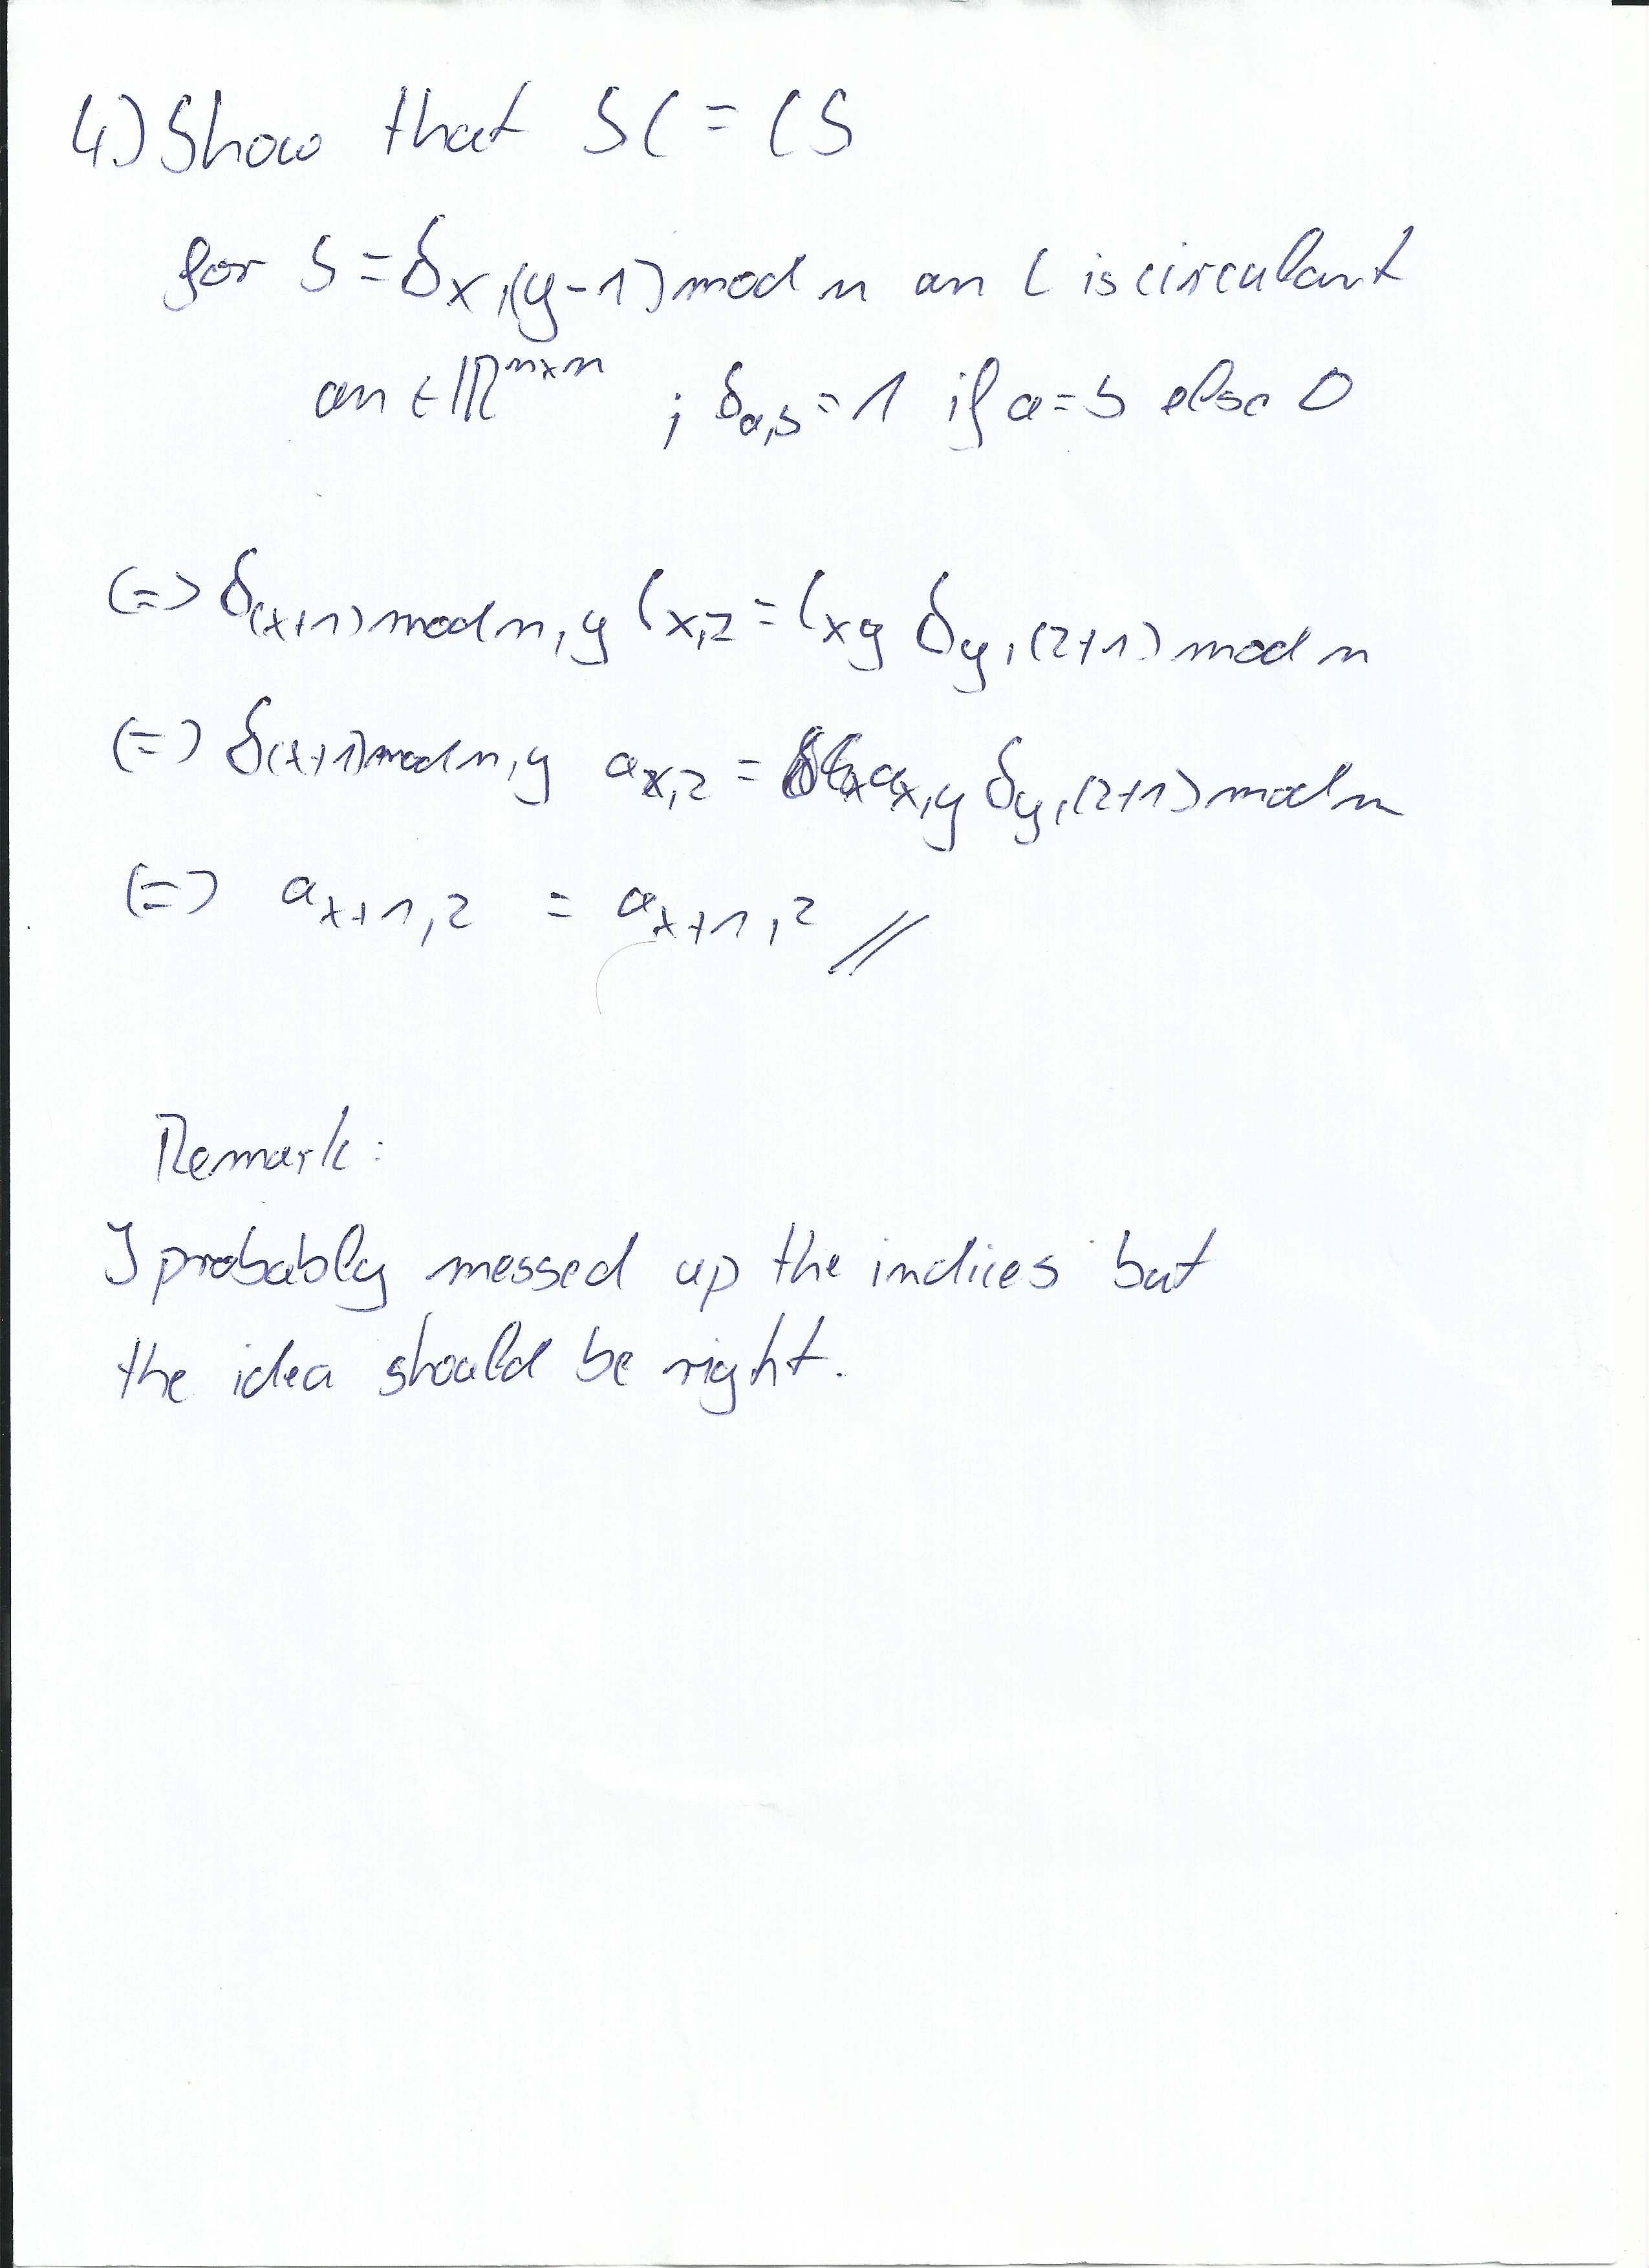 4) Show that SC = CS
for S = δx,(y-1) mod n an C is circulant
an ∈ ℝ^n×n ; δa,b = 1 if a = b else 0
<=> δ(x+1) mod n, y Cx,z = Cxy δy,(z+1) mod n
<=> δ(x+1) mod n, y ax,z = ax,y δy,(z+1) mod n
<=> ax+1,z = ax+1,z //
Remark:
I probably messed up the indices but
the idea should be right.